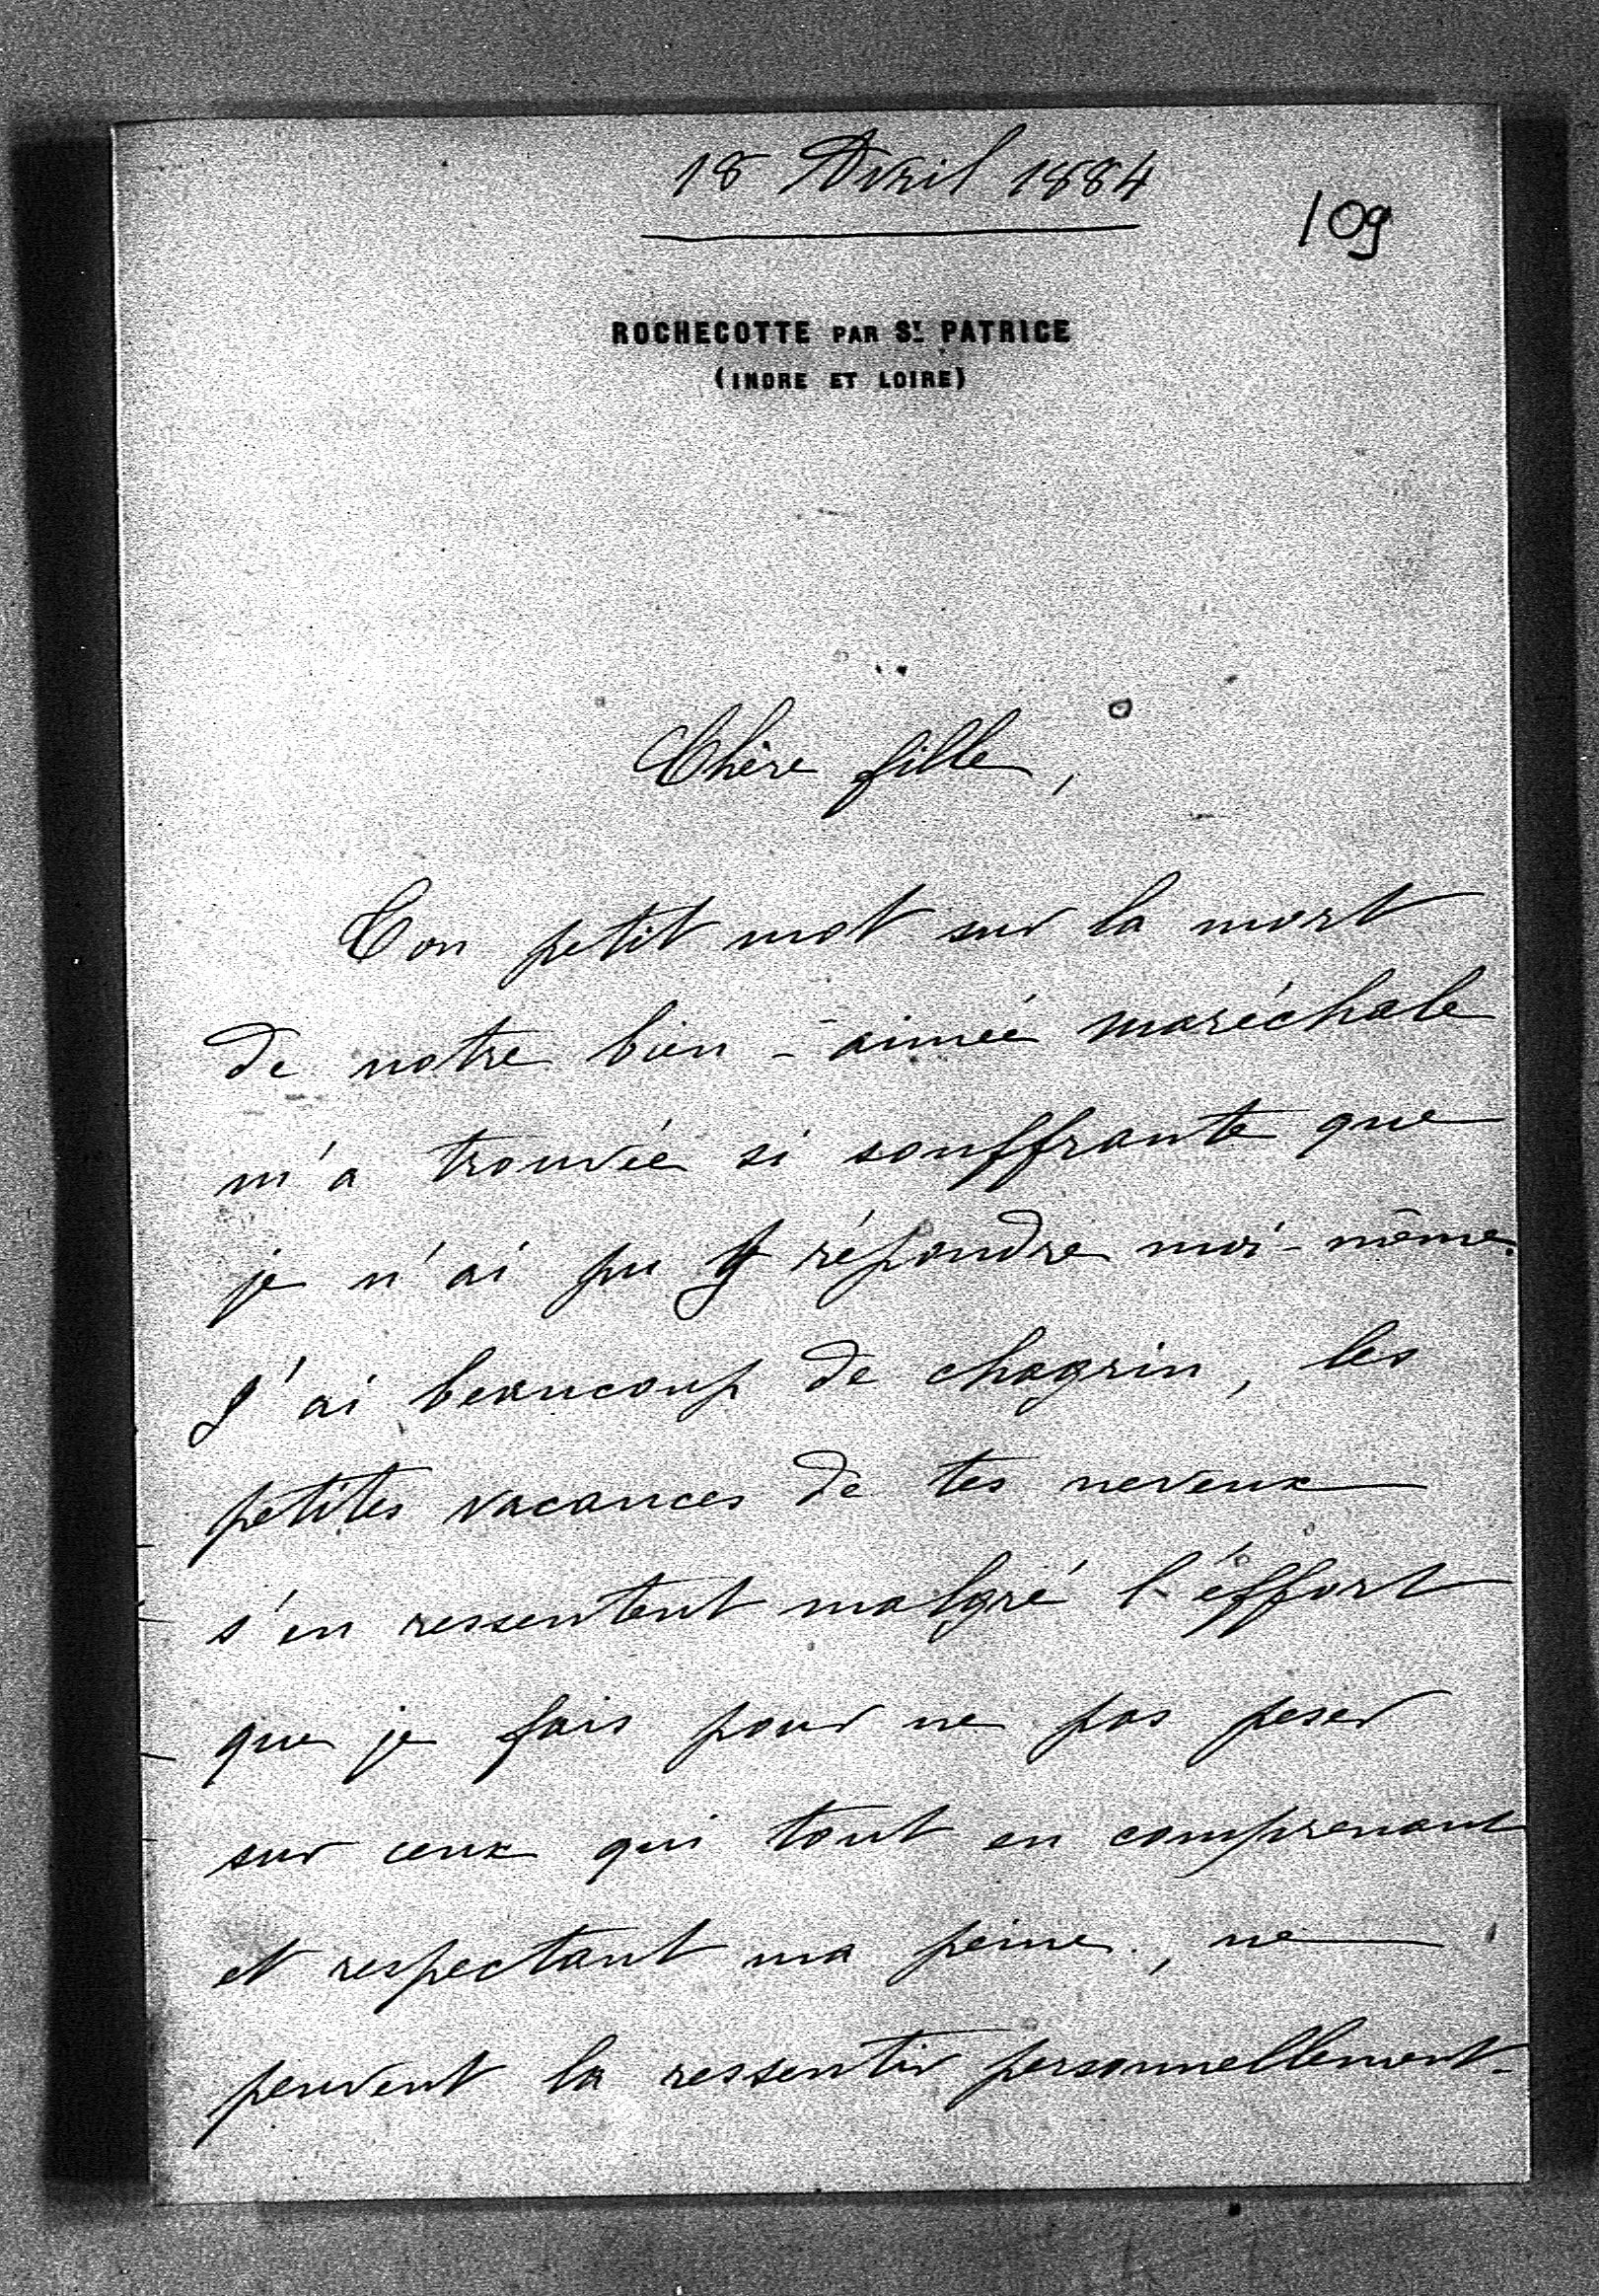 18 Avril 1884
109
ROCHECOTTE PAR ST PATRICE
(INDRE ET LOIRE)
Chère fille,
Ton petit mot sur la mort
de notre bien-aimée maréchale
m'a trouvée si souffrante que
je n'ai pu y répondre moi-même.
J'ai beaucoup de chagrin, les
petites vacances de tes neveux
s'en ressentent malgré l'éffort
que je fais pour ne pas peser
sur ceux qui tout en comprenant
et respectant ma peine, ne
peuvent la ressentir personnellement.